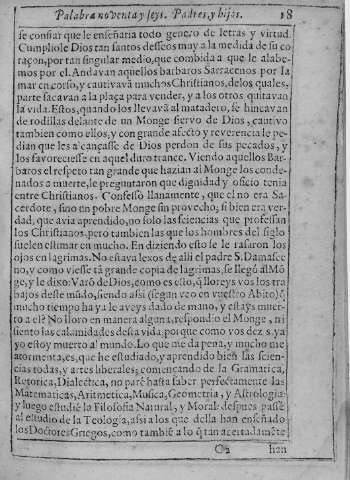 Palabra noventa y seys. Padres, y hijos. 18
se consiar que le enseñaria todo genero de letras y virtud.
Cumpliole Dios tan santos desseos muy a la medida de su co
raçon, por tan singular medio, que combida a que le alabe-
mos por el. Andavan aquellos barbaros Sarracenos por la
mar en corso, y cautivavã muchos Christianos, de los quales,
parte sacavan a la plaça para vender, y a los otros quitavan
la vida. Estos, quando los llevavã al matadero, se hincavan
de rodillas delante de un Monge siervo de Dios, cautivo
tambien como ellos, y con grande afecto y reverencia le pe-
dian que les alcançasse de Dios perdon de sus pecados, y
los favoreciesse en aquel duro trance. Viendo aquellos Bar-
baros el respeto tan grande que hazian al Monge los conde-
nados a muerte, le preguntaron que dignidad y oficio tenia
entre Christianos. Confessò llanamente, que el no era Sa-
cerdote, sino un pobre Monge sin provecho, si bien era ver-
dad, que avia aprendido, no solo las sciencias que professan
los Christianos, pero tambien las que los hombres del siglo
suelen estimar en mucho. En diziendo esto se le rasaron los
ojos en lagrimas. No estava lexos de alli el padre S. Damasce
no, y como viesse tã grande copia de lagrimas, se llegó al Mõ
ge, y le dixo: Varõ de Dios, como es esto, q̃ lloreys vos los tra
bajos deste mũdo, siendo assi (segun veo en vuestro Abito) q̃
mucho tiempo ha y a le aveys dado de mano, y estays muer-
to a el? No lloro en manera alguna, respondio el Monge, ni
siento las calamidades desta vida, porque como vos dezis, ya
yo estoy muerto al mundo. Lo que me da pena, y mucho me
atormenta, es, que he estudiado, y aprendido bien las scien-
cias todas, y artes liberales; començando de la Gramatica,
Retorica, Dialectica, no parè hasta saber perfectamente las
Matematicas, Aritmetica, Musica, Geometria, y Astrologia:
y luego estudiè la Filosofia Natural, y Moral: despues passè
al estudio de la Teologia, assi a los que della han enseñado
los Doctores Griegos, como tambiẽ a lo q̃ tan acertadamẽte
han